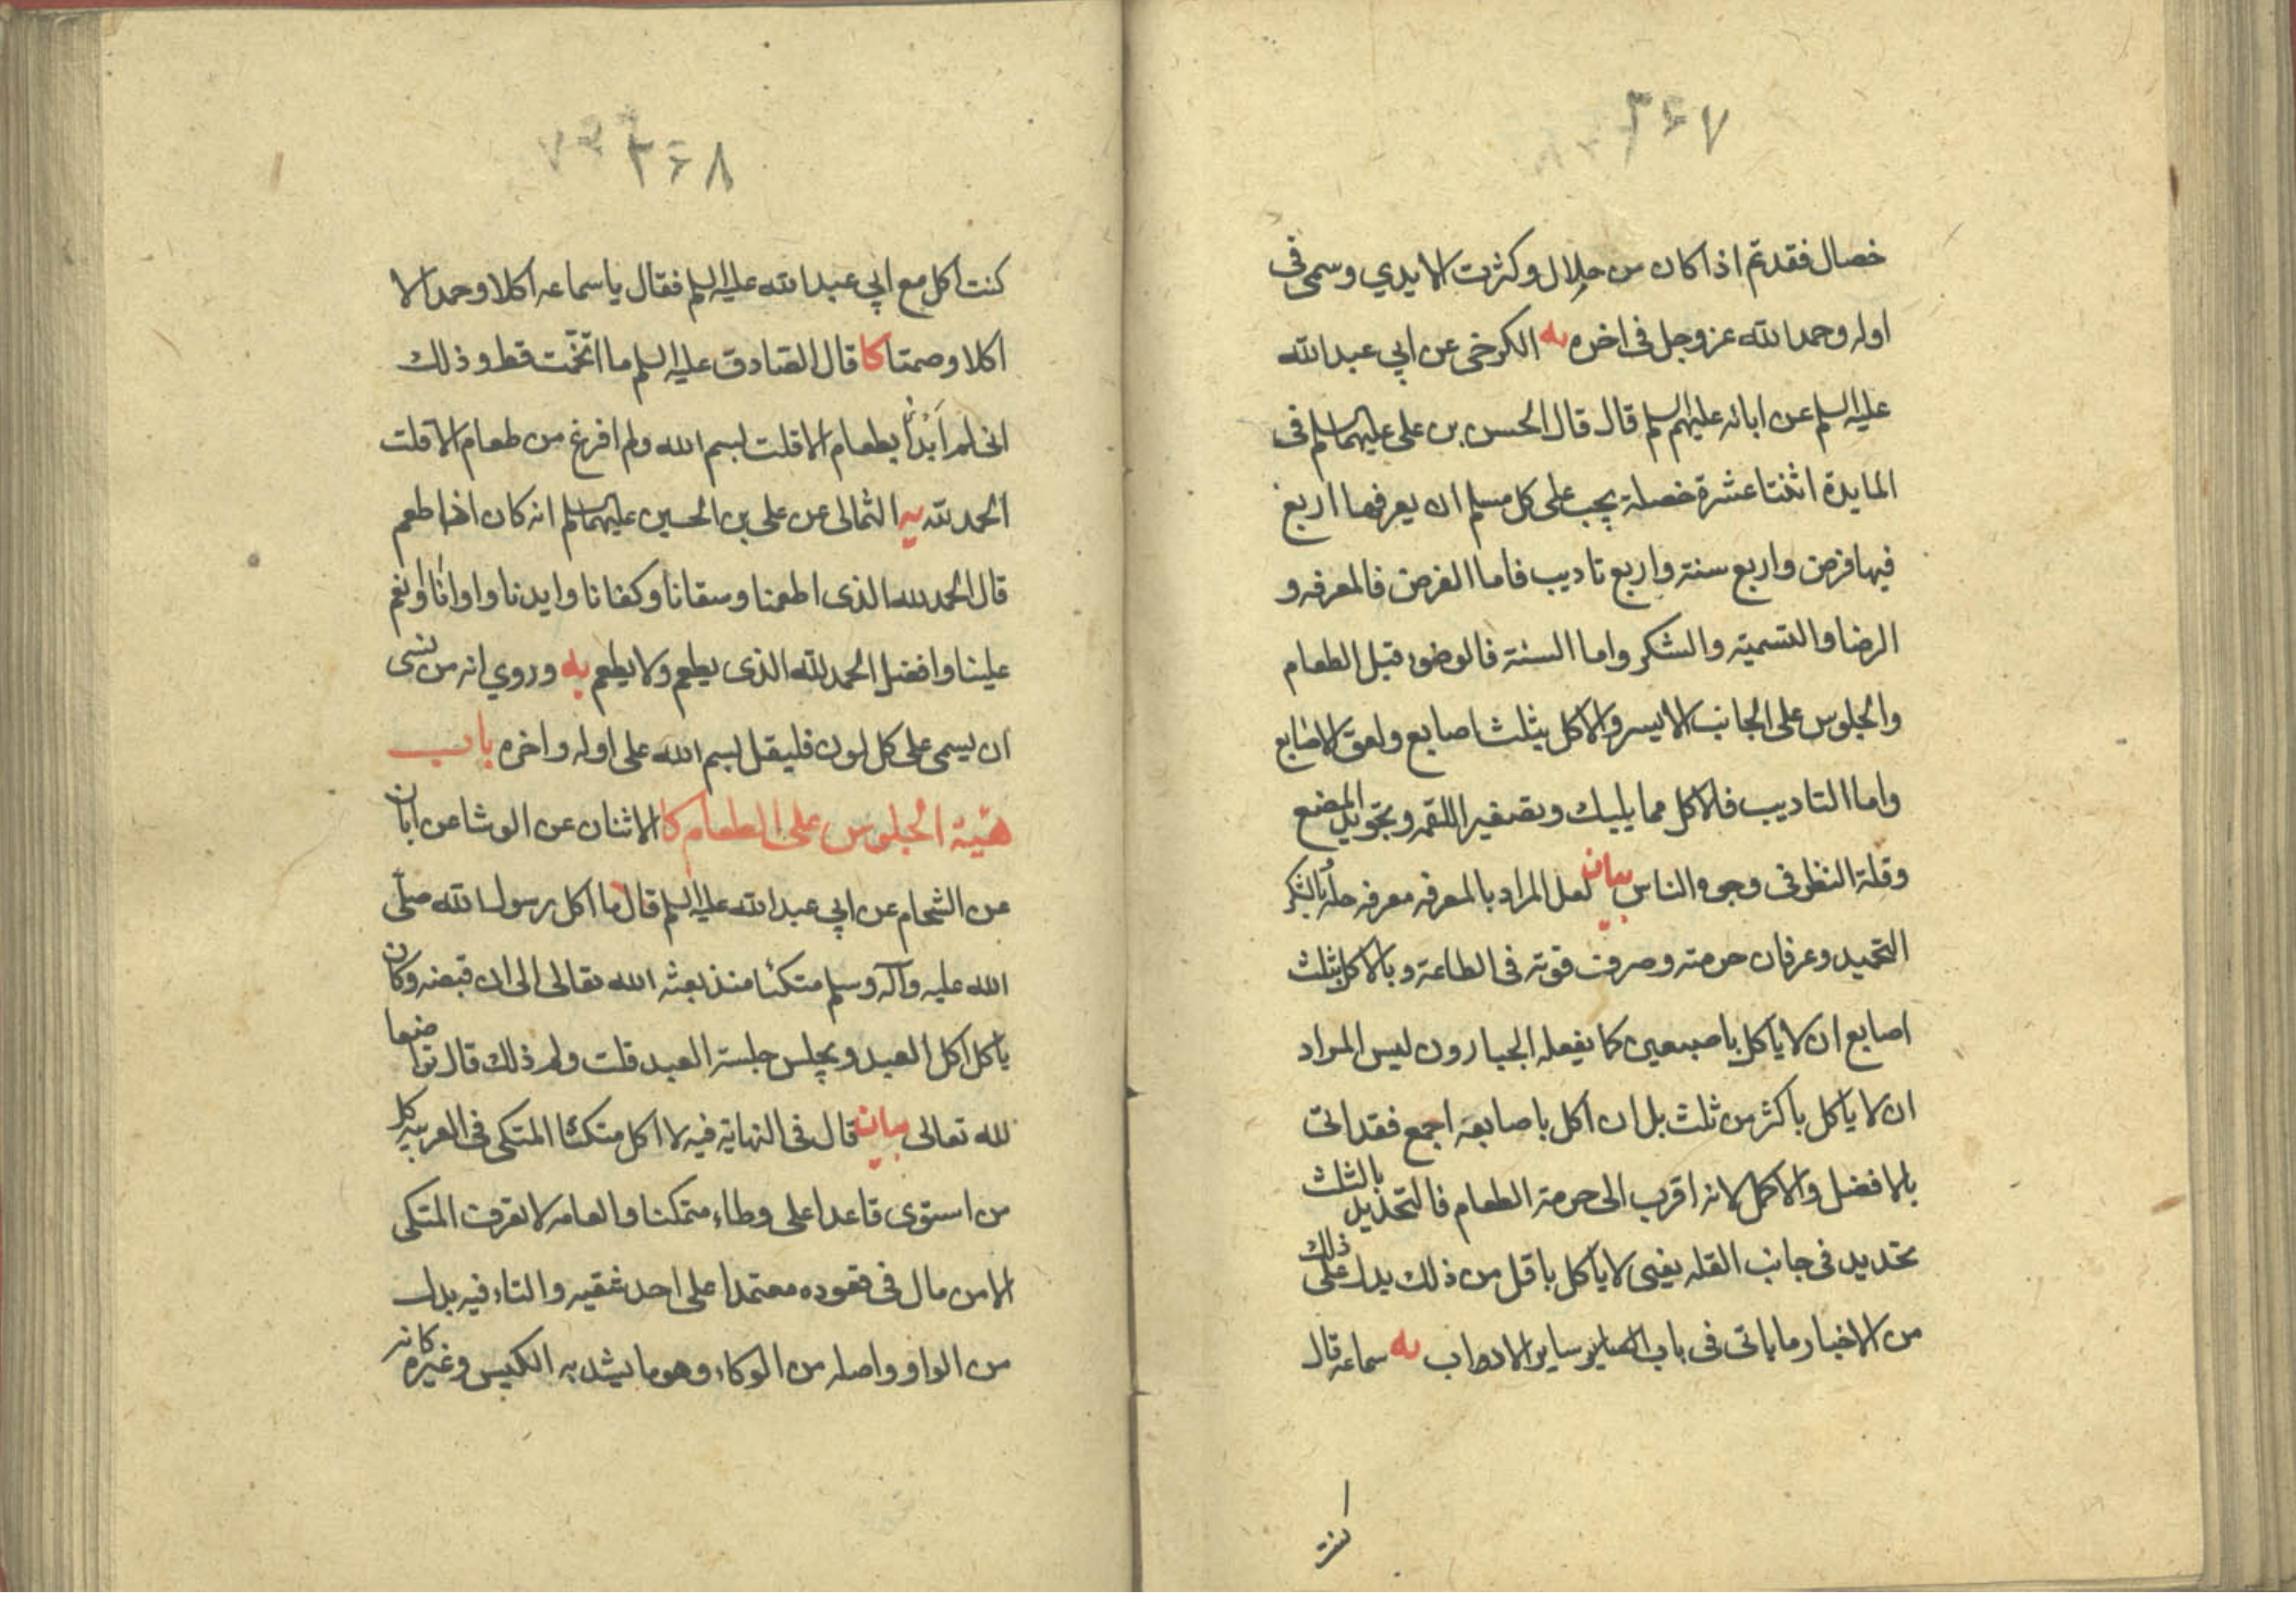 ۳۶۷
خصال فقد تم اذا كان من حلال وكثرت الايدي وسمى فى
اوله وحمد الله عز وجل فى اخره يه الكرخى عن ابي عبد الله
عليه السلم عن ابائه عليهم السلم قال قال الحسن بن على عليهما السلم فى
المايدة اثنتا عشرة خصلة يجب على كل مسلم ان يعرفها اربع
فيها فرض واربع سنة واربع تاديب فاما الفرض فالمعرفه و
الرضا والتسمية والشكر واما السنة فالوضوء قبل الطعام
والجلوس على الجانب الايسر والاكل بثلث اصابع ولعق الاصابع
واما التاديب فالاكل مما يليك وتصغير اللقمه وتجويد المضغ
وقلة النظر فى وجوه الناس بيان لعل المراد بالمعرفه معرفه حله بالشكر
التحميد وعرفان حرمته وصرف قوته فى الطاعة وبالاكل بثلث
اصابع ان لا ياكل باصبعين كما يفعله الجبارون ليس المراد
ان لا ياكل باكثر من ثلث بل ان اكل باصابعه اجمع فقد اتى
بالافضل والاكمل لانه اقرب الى حرمة الطعام فالتحديد بالثلث
تحديد فى جانب القله يعنى لا ياكل باقل من ذلك يدل على ذلك
من الاخبار ما ياتى فى باب ساير الاداب يه سماعه قال
كنت
۳۶۸
كنت اكل مع ابي عبد الله عليه السلم فقال يا سماعه اكلا وحمدا لا
اكلا وصمتا كا قال الصادق عليه السلم ما اتخمت قط وذلك
انى لم ابدأ بطعام الا قلت بسم الله ولم افرغ من طعام الا قلت
الحمد لله يه الثمالى عن على بن الحسين عليهما السلم انه كان اذا طعم
قال الحمد لله الذى اطعمنا وسقانا وكفانا وايدنا واوانا وانعم
علينا وافضل الحمد لله الذى يطعم ولا يطعم يه وروي انه من نسى
ان يسمى على كل لون فليقل بسم الله على اوله واخره باب
هيئة الجلوس على الطعام كا الاثنان عن الوشا عن ابان
عن الشحام عن ابي عبد الله عليه السلم قال ما اكل رسول الله صلى
الله عليه وآله وسلم متكئا منذ بعثه الله تعالى الى ان قبضه وكان
ياكل اكل العبد ويجلس جلسة العبد قلت ولم ذلك قال تواضعا
لله تعالى بيان قال فى النهاية فيه لا اكل متكئا المتكى فى العربيه كل
من استوى قاعدا على وطاء متمكنا والعامه لا تعرف المتكى
الا من مال فى قعوده معتمدا على احد شقيه والتاء فيه بدل
من الواو واصله من الوكاء وهو ما يشد به الكيس وغيره كانه